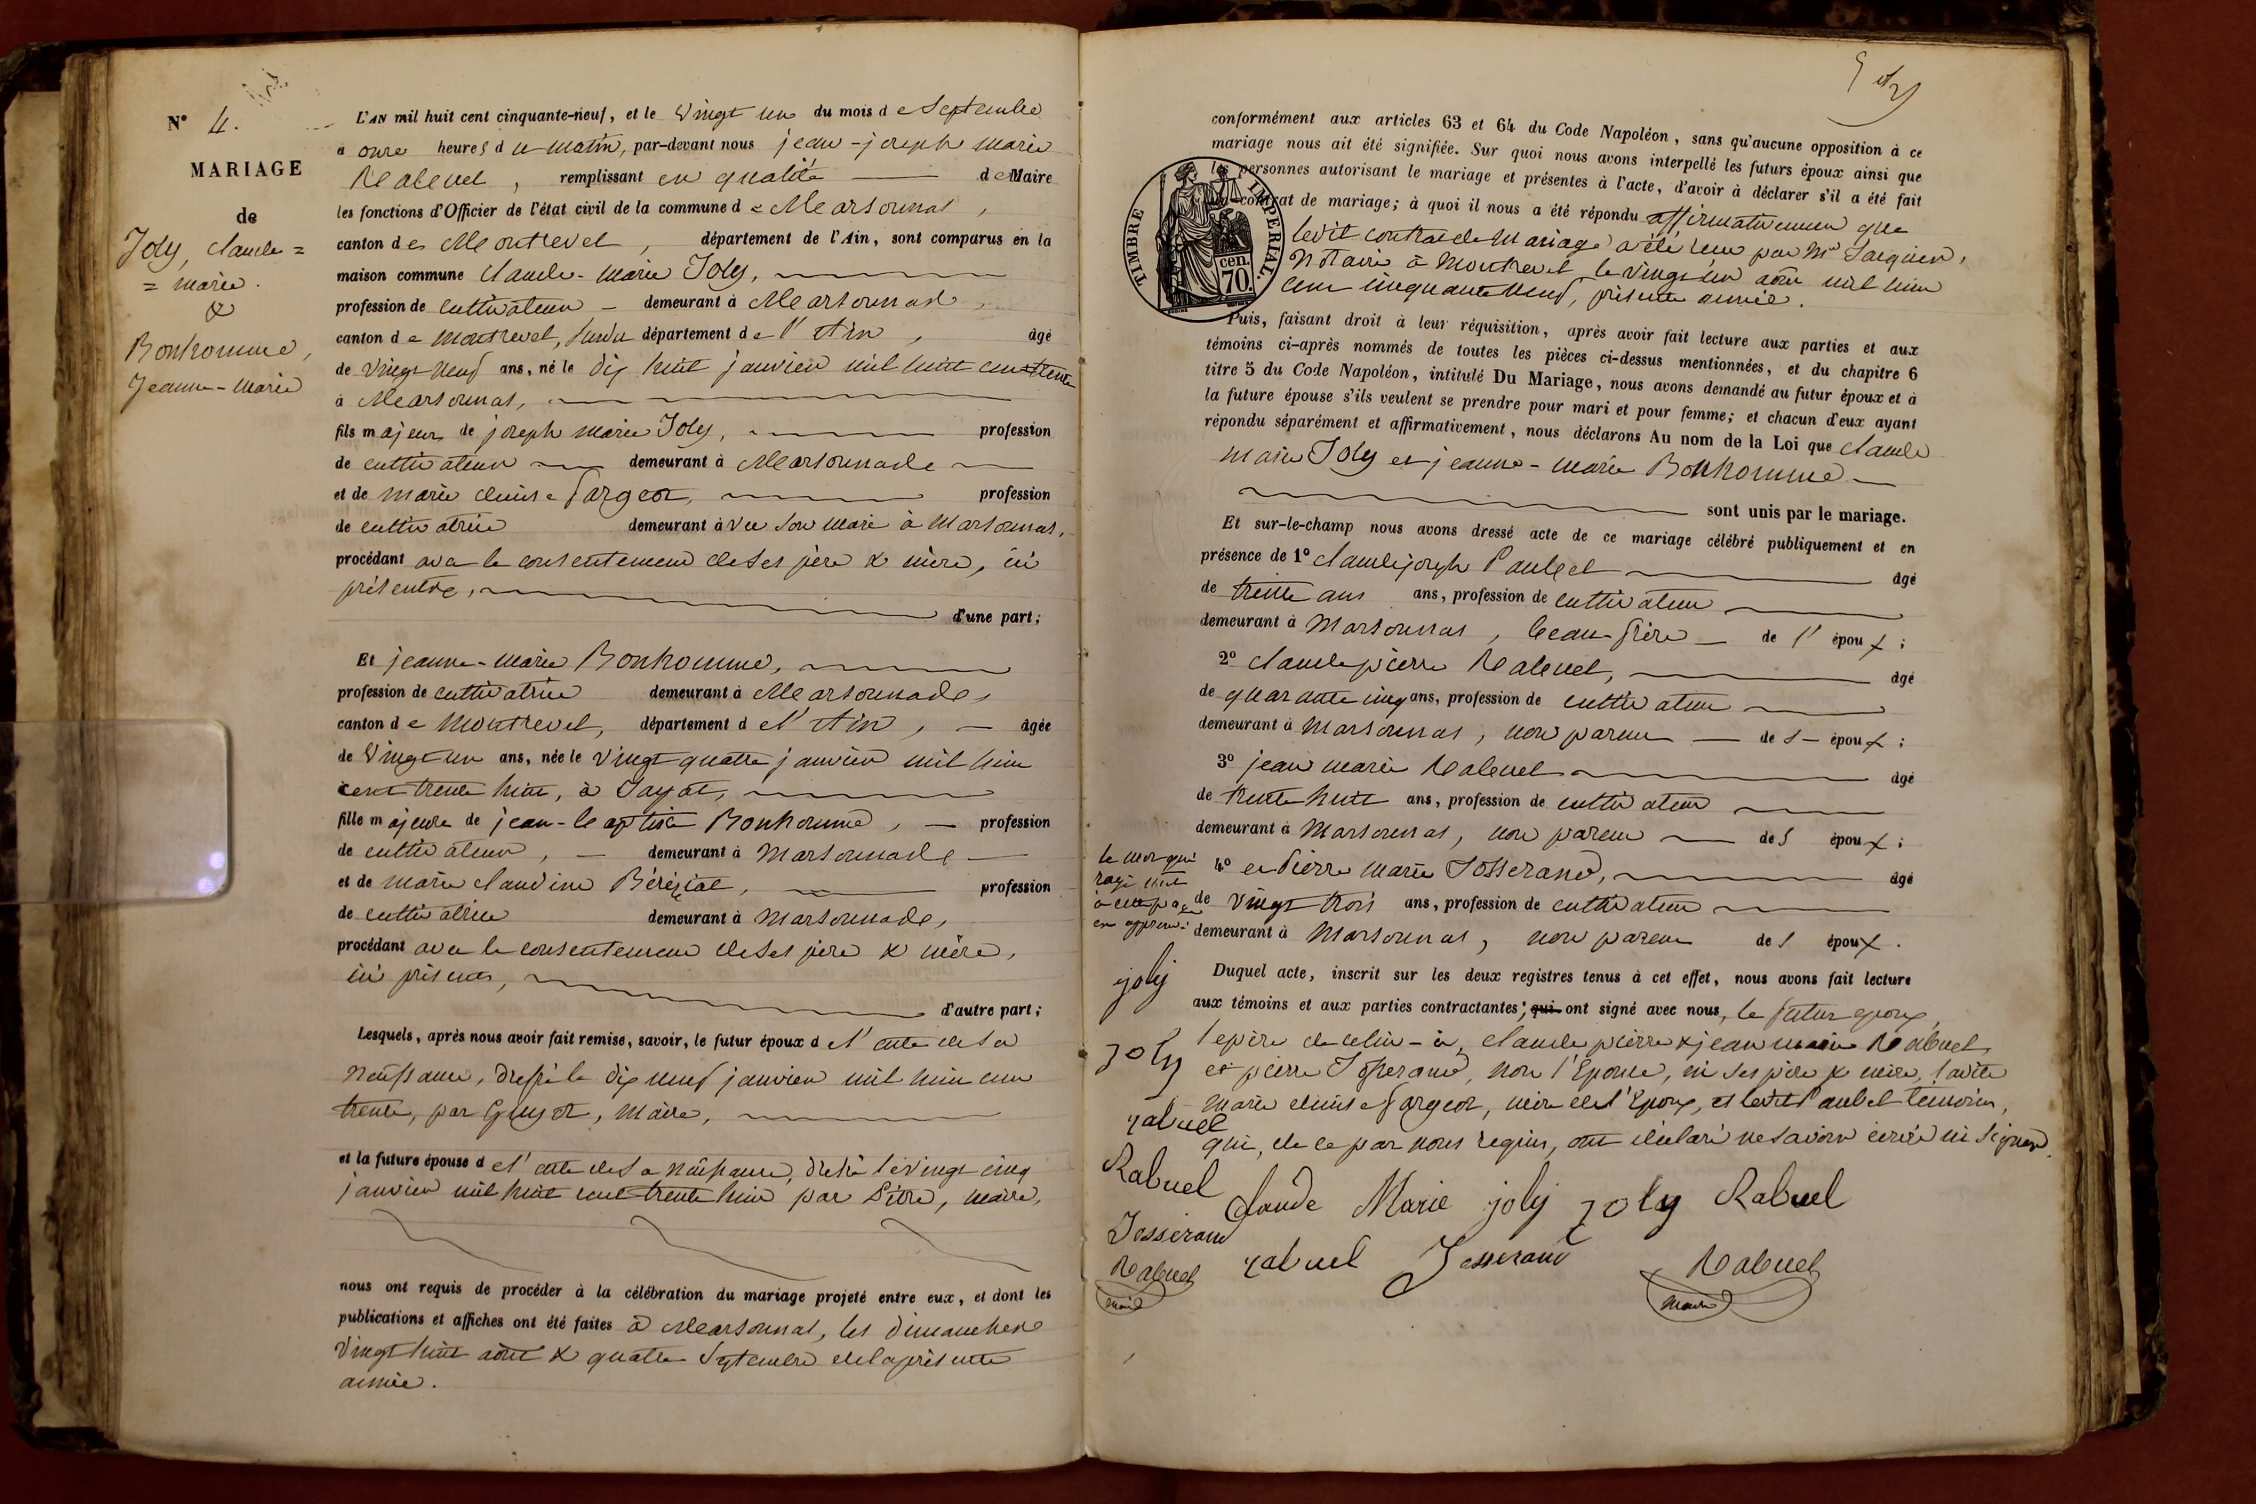 N° 4.
MARIAGE
de
Joly, claude =
= marie.
&
Bonhomme,
Jeanne-Marie
L'AN mil huit cent cinquante-neuf, et le vingt un du mois de Septembre
à onze heures du matin, par-devant nous jean-joseph marie
Rabuel, remplissant en qualité de Maire
les fonctions d'Officier de l'état civil de la commune de Marsonnas,
canton de Montrevel, département de l'Ain, sont comparus en la
maison commune claude-marie Joly,
profession de cultivateur demeurant à Marsonnas
canton de Montrevel, département de l'Ain, âgé
de vingt neuf ans, né le dix huit janvier mil huit cent trente
à Marsonnas,
fils majeur de joseph marie Joly, profession
de cultivateur demeurant à Marsonnas
et de marie Fargeot, profession
de cultivatrice demeurant à son mari à Marsonnas,
procédant avec le consentement de ses père & mère, ici
présents,
d'une part;
Et jeanne-marie Bonhomme,
profession de cultivatrice demeurant à Marsonnas,
canton de Montrevel, département de l'Ain, âgée
de vingt un ans, née le vingt quatre janvier mil huit
cent trente huit, à Jayat,
fille majeure de jean-baptiste Bonhomme, profession
de cultivateur, demeurant à Marsonnas
et de marie claudine Béréziat, profession
de cultivatrice demeurant à Marsonnas,
procédant avec le consentement de ses père & mère,
ici présents,
d'autre part;
Lesquels, après nous avoir fait remise, savoir, le futur époux de l'acte de sa
naissance, dressé le dix neuf janvier mil huit cent
trente, par Guyot, maire,
et la future épouse de l'acte de sa naissance, dressé le vingt cinq
janvier mil huit cent trente huit par maire,
nous ont requis de procéder à la célébration du mariage projeté entre eux, et dont les
publications et affiches ont été faites à Marsonnas, les dimanches
vingt huit août & quatre Septembre de la présente
année.
conformément aux articles 63 et 64 du Code Napoléon, sans qu'aucune opposition à ce
mariage nous ait été signifiée. Sur quoi nous avons interpellé les futurs époux ainsi que
les personnes autorisant le mariage et présentes à l'acte, d'avoir à déclarer s'il a été fait
contrat de mariage; à quoi il nous a été répondu affirmativement que
TIMBRE IMPERIAL.
cen.
70.
ledit contrat de mariage a été reçu par Me
notaire à Montrevel le vingt un août mil huit
cent cinquante neuf, présente année.
Puis, faisant droit à leur réquisition, après avoir fait lecture aux parties et aux
témoins ci-après nommés de toutes les pièces ci-dessus mentionnées, et du chapitre 6
titre 5 du Code Napoléon, intitulé Du Mariage, nous avons demandé au futur époux et à
la future épouse s'ils veulent se prendre pour mari et pour femme; et chacun d'eux ayant
répondu séparément et affirmativement, nous déclarons Au nom de la Loi que claude
marie Joly et jeanne-marie Bonhomme
sont unis par le mariage.
Et sur-le-champ nous avons dressé acte de ce mariage célébré publiquement et en
présence de 1° claude joseph Paubel âgé
de trente ans ans, profession de cultivateur
demeurant à Marsonnas, beau-frère de l'époux;
2° claude pierre Rabuel, âgé
de quarante cinq ans, profession de cultivateur
demeurant à Marsonnas, non parent des époux;
3° jean marie Rabuel âgé
de trente huit ans, profession de cultivateur
demeurant à Marsonnas, non parent des époux;
4° et Pierre marie Josserand, âgé
de vingt trois ans, profession de cultivateur
demeurant à Marsonnas, non parent des époux.
le mot qui
rayé nul
à cette page
est approuvé
Duquel acte, inscrit sur les deux registres tenus à cet effet, nous avons fait lecture
aux témoins et aux parties contractantes; qui ont signé avec nous, le futur époux,
le père de celui-ci, claude pierre & jean marie Rabuel,
et pierre Josserand, non l'Epouse, ni ses père & mère, ladite
marie Fargeot, mère de l'Epoux, et ledit Paubel témoins,
qui, de ce par nous requis, ont déclaré ne savoir écrire ni signer.
joly
Joly
rabuel
Rabuel
Josserand
Rabuel
maire
Claude Marie joly Joly Rabuel
rabuel Josserand Rabuel
maire